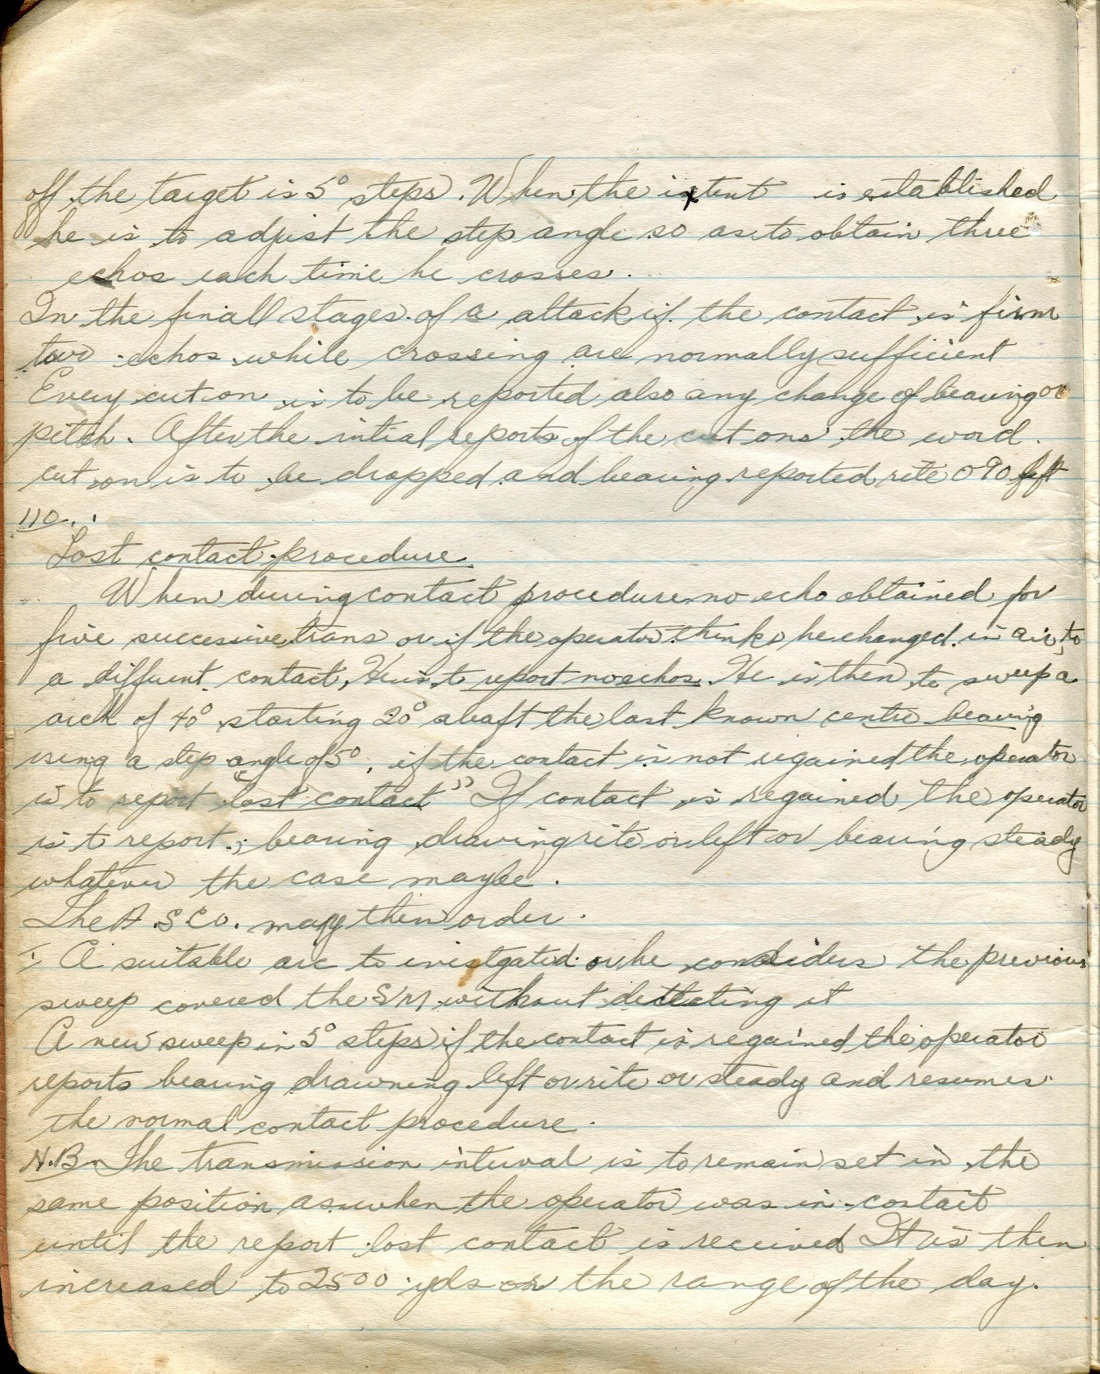 off the target is 5° steps. When the extent is established
he is to adjist the step angle so as to obtain three
echos each time he crosses.
In the finall stages of a attack if the contact is firm
two echos while crossing are normally sufficient
Every cut on is to be reported also any change of bearing or
pitch. After the intial reports of the cut ons the word.
cut on is to be dropped and bearing reported rite 090 left
110..
Lost contact procedure.
When during contact procedure no echo obtained for
five succesive trans or if the operator thinks he changed in air to
a diffrent contact, He is to report no echos. He is then to sweep a
arck of 40° starting 20° abaft the last known centre bearing
using a step angle of 5°, if the contact is not regained the operator
is to report "lost contact" If contact is regained the operator
is t report.; bearing drawing rite or left or bearing steady
whatever the case maybe.
The A.S.C.O. may then order.
1; A suitable arc to invistgated or he considers the previous
sweep covered the S/M without detecting it
A new sweep in 5° steps if the contact is regained the operator
reports bearing drawning left or rite or steady and resumes
the normal contact procedure.
N.B. The transmission interval is to remain set in the
same position as when the operator was in contact
until the report lost contact is received It is then
increased to 2500 yds or the range of the day.